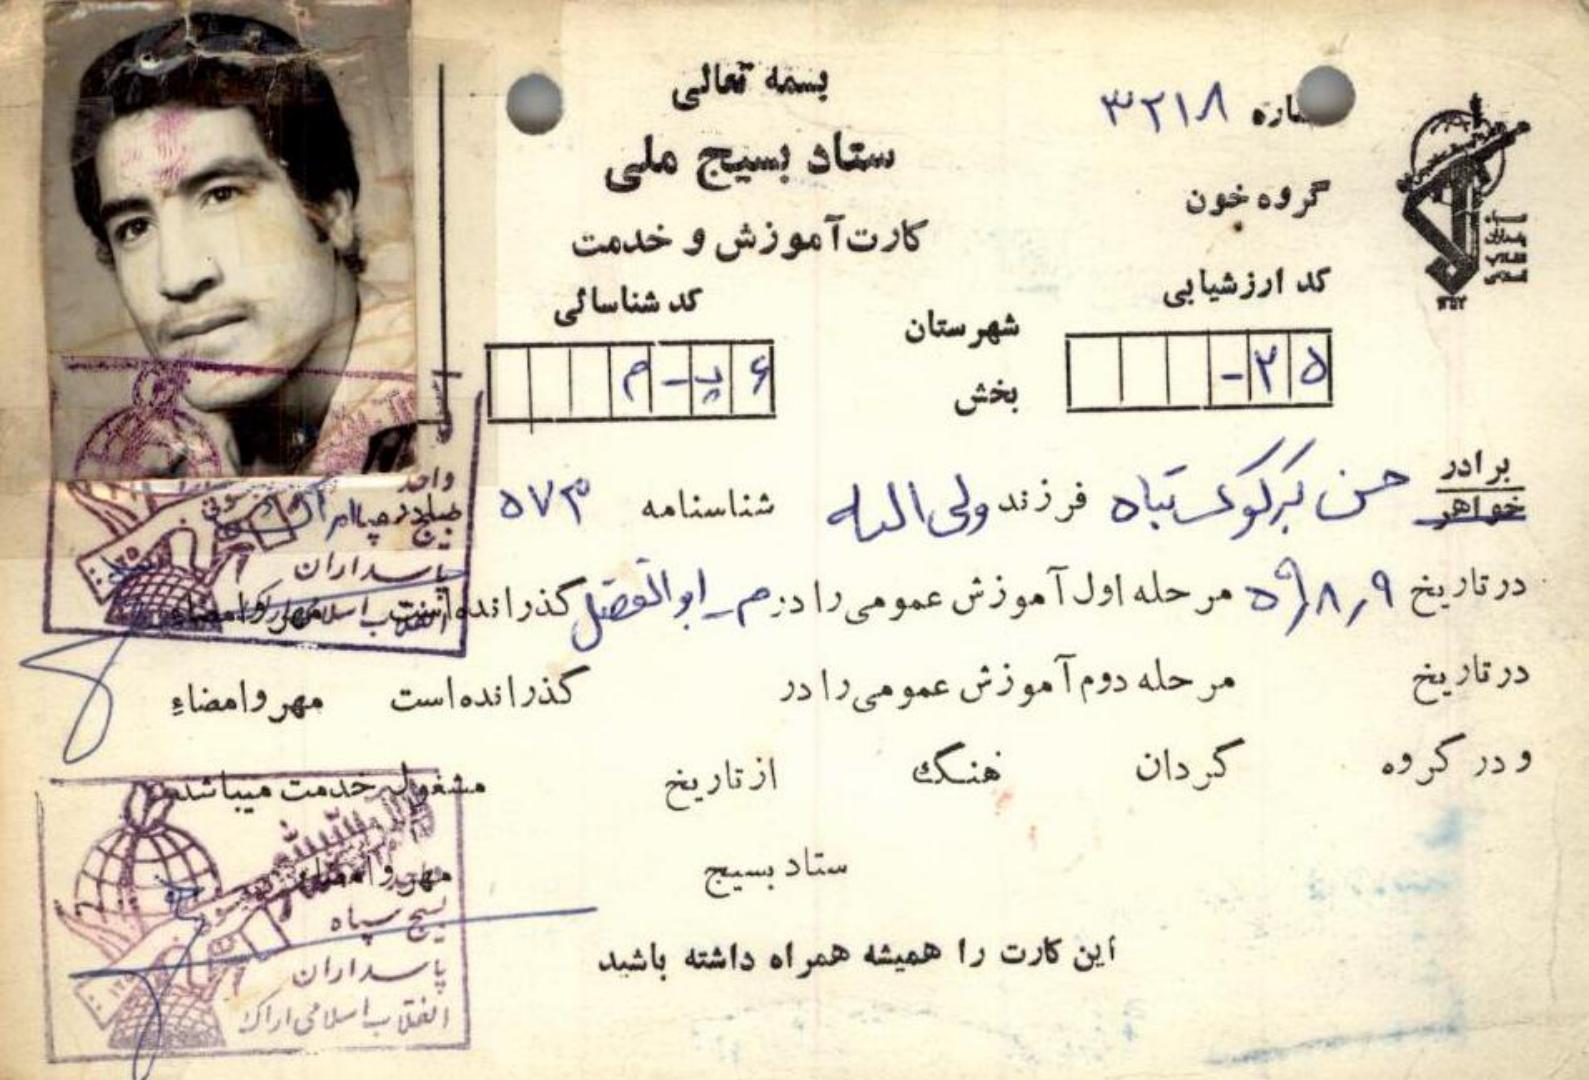 بسمه تعالی
ستاد بسیج ملی
کارت آموزش و خدمت
شماره ۳۲۱۸
گروه خون
کد ارزشیابی
۲۵-
شهرستان
بخش
کد شناسائی
۶ پ - م
برادر
خواهر
حسن فرزند ولی الله شناسنامه ۵۷۳
در تاریخ ۵۹/۸/۹ مرحله اول آموزش عمومی را در م-ابوالفضل گذرانده است مهر و امضاء
در تاریخ مرحله دوم آموزش عمومی را در گذرانده است مهر و امضاء
و در گروه گردان هنگ از تاریخ مشغول خدمت میباشد
ستاد بسیج مهر و امضاء
این کارت را همیشه همراه داشته باشید
سپاه
پاسداران
انقلاب
اسلامی
واحد
پاسداران
انقلاب اسلامی
بسیج سپاه
پاسداران
انقلاب اسلامی اراک